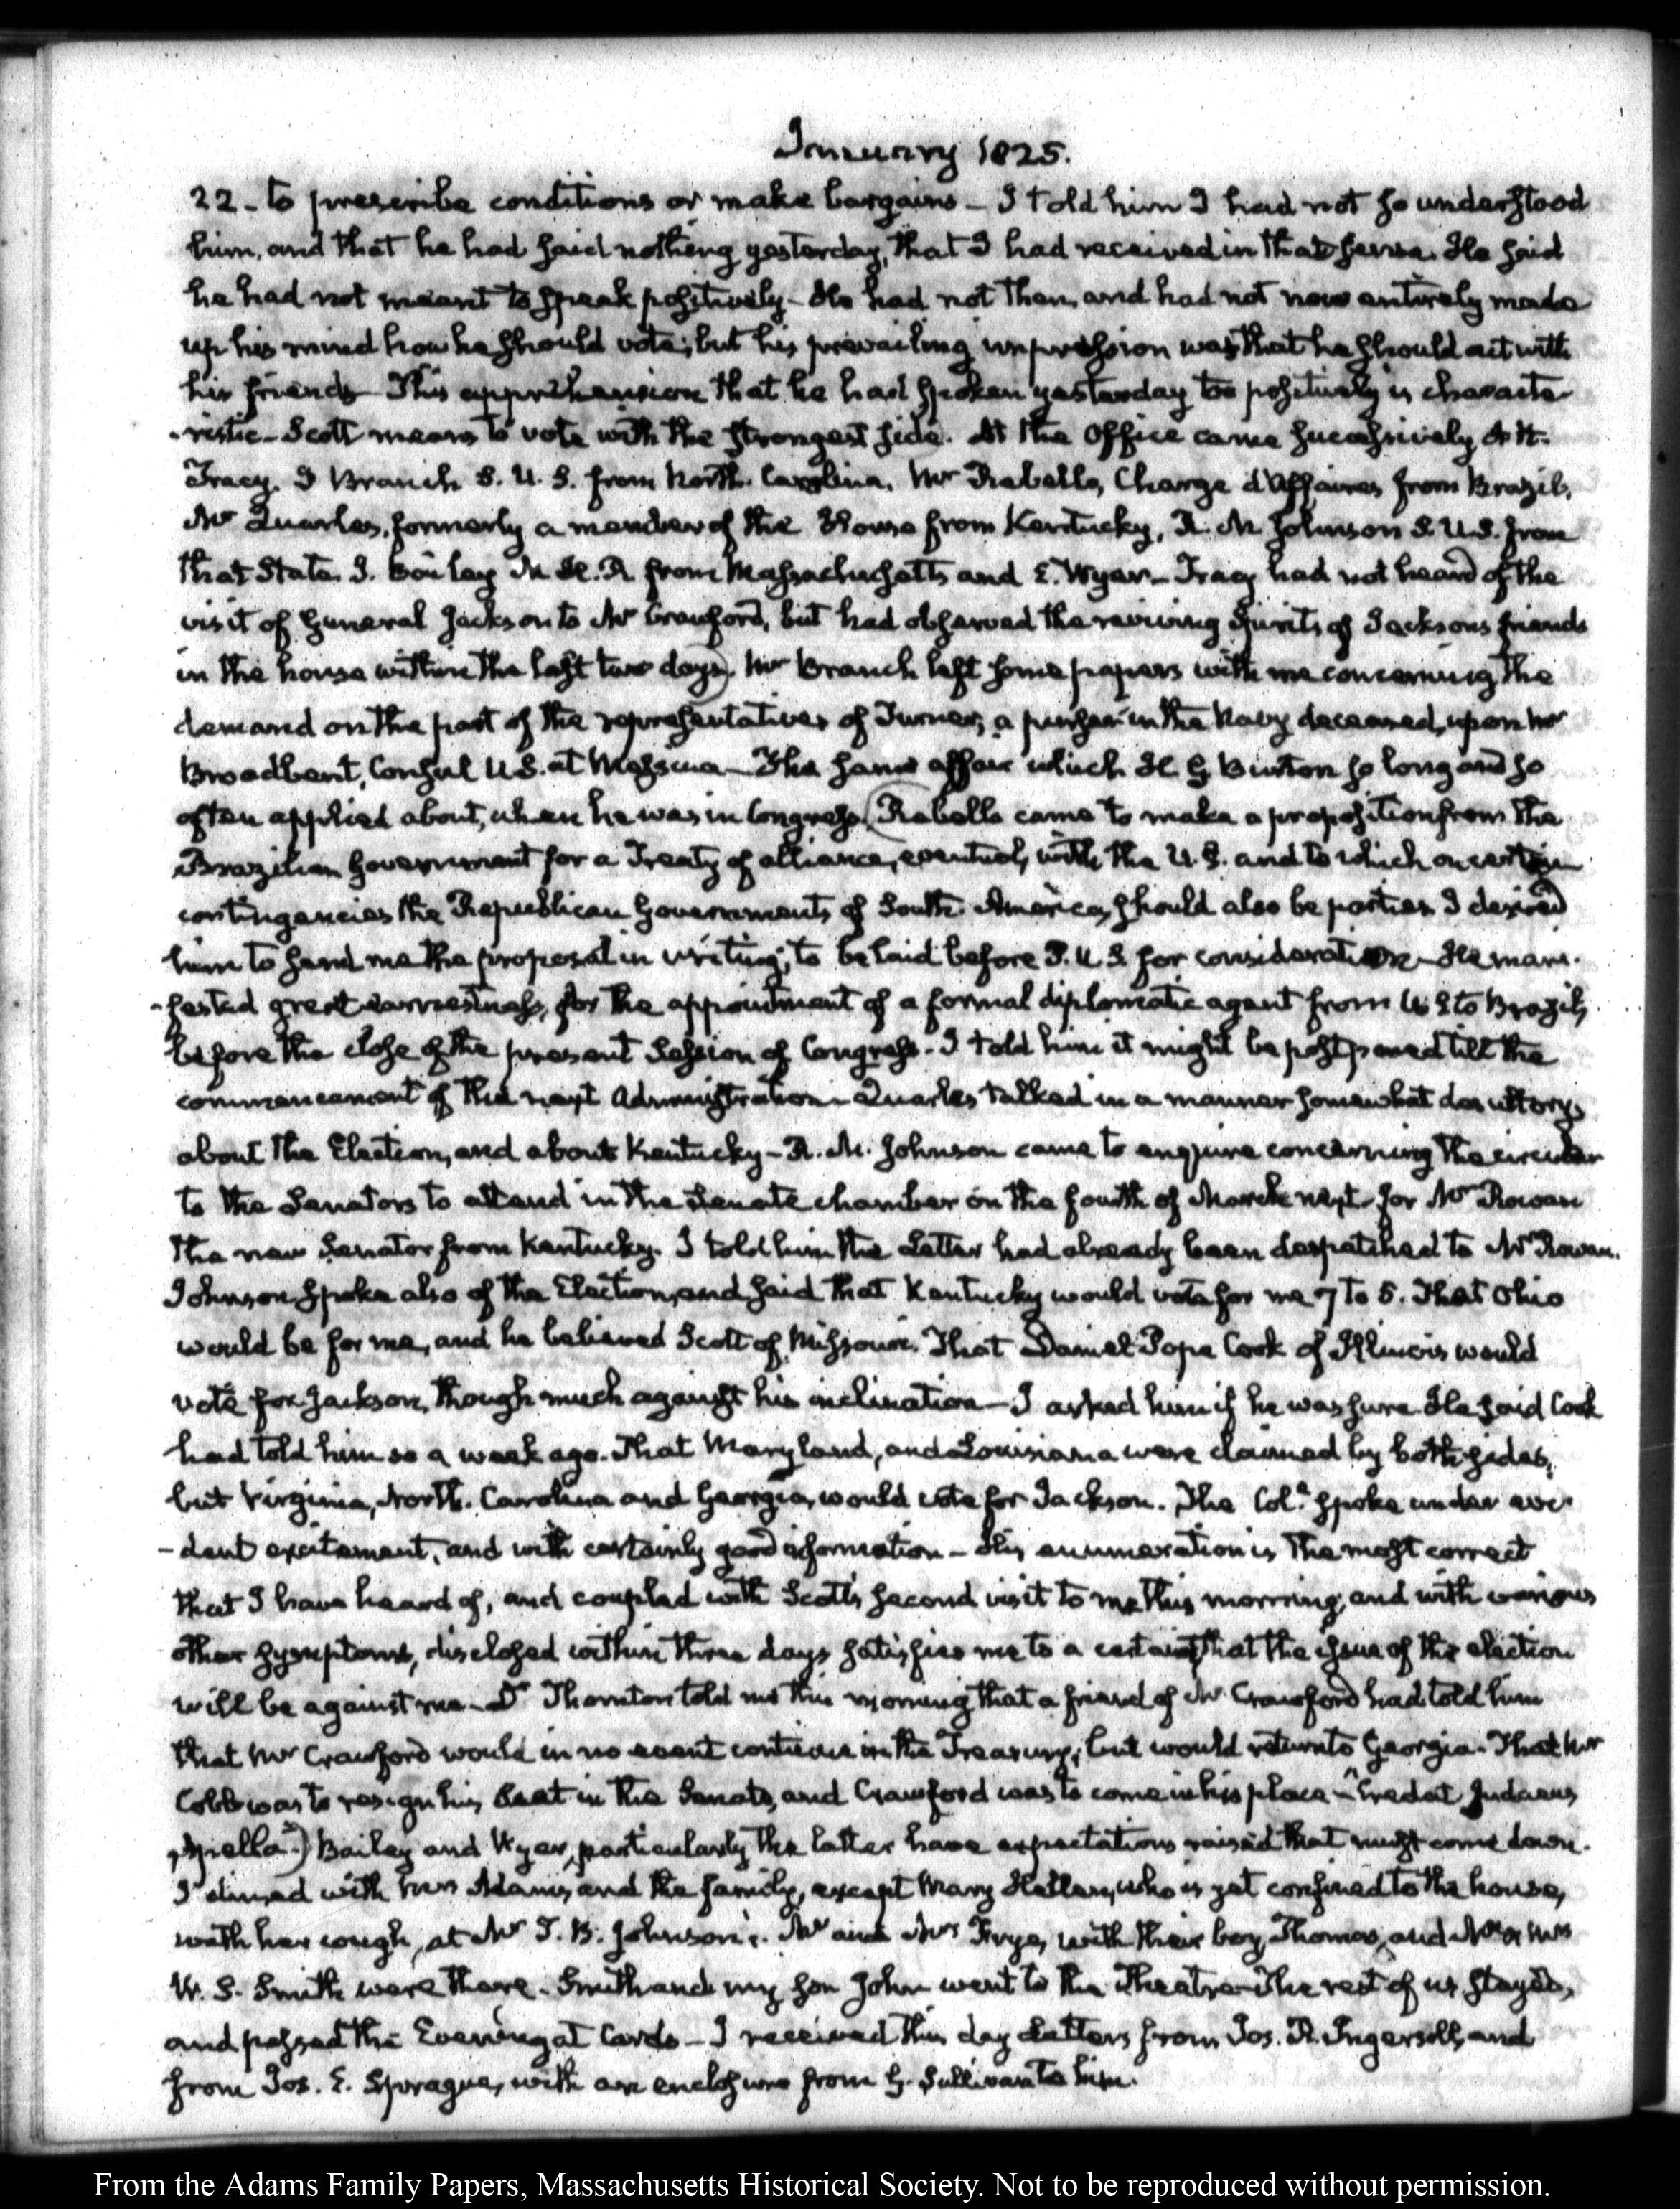 January 1825.
22 - to prescribe conditions or make bargains - I told him I had not so understood
him, and that he had said nothing yesterday, that I had received in that sense. He said
he had not meant to speak positively - He had not then, and had not now entirely made
up his mind how he should vote; but his prevailing impression was that he should act with
his friends - This apprehension that he had spoken yesterday too positively is characte-
-ristic - Scott means to vote with the strongest side. At the Office came successively
Tracy. J Branch S. U. S. from North Carolina, Mr Rebello, Charge d'Affaires from Brazil,
Mr Quarles, formerly a member of the House from Kentucky, R. M. Johnson S. U.S. from
that State. J. Bailey M H. R from Massachusetts and E. Wyer - Tracy had not heard of the
visit of General Jackson to Mr Crawford, but had observed the reviving spirits of Jacksons friends
in the house within the last two days) Mr Branch left some papers with me concerning the
demand on the part of the representatives of Turner, a purser in the Navy deceased, upon Mr
Broadbent, Consul U.S. at Messina - The same affair which H G Burton so long and so
often applied about, when he was in Congress. (Rebello came to make a proposition from the
Brazilian Government for a Treaty of alliance, eventual, with the U.S. and to which on certain
contingencies the Republican Governments of South America, should also be parties I desired
him to send me the proposal in writing, to be laid before P. U S. for consideration - He mani-
-fested great earnestness, for the appointment of a formal diplomatic agent from U S to Brazil,
before the close of the present Session of Congress - I told him it might be postponed till the
commencement of the next Administration - Quarles talked in a manner somewhat desultory,
about the Election, and about Kentucky - R. M. Johnson came to enquire concerning the circular
to the Senators to attend in the Senate chamber on the fourth of March next - for Mr Rowan
the new Senator from Kentucky. I told him the Letter had already been despatched to Mr Rowan.
Johnson spoke also of the Election, and said that Kentucky would vote for me 7 to 5. That Ohio
would be for me, and he believed Scott of Missouri. That Daniel Pope Cook of Illinois would
vote for Jackson, though much against his inclination - I asked him if he was sure. He said Cook
had told him so a week ago. That Maryland, and Louisiana were claimed by both sides,
but Virginia, North Carolina and Georgia, would vote for Jackson. The Col.l spoke under evi-
-dent excitement, and with certainly good information - His enumeration is the most correct
that I have heard of, and coupled with Scott's second visit to me this morning, and with various
other symptoms, disclosed within three days satisfies me to a certainty that the issue of the election
will be against me - Dr Thornton told me this morning that a friend of Mr Crawford had told him
that Mr Crawford would in no event continue in the Treasury; but would return to Georgia. That Mr
Cobb was to resign his Seat in the Senate, and Crawford was to come in his place - "Credat Judaeus
Apella") Bailey and Wyer, particularly the latter have expectations raised that must come down.
I dined with Mrs Adams, and the family, except Mary Hellen, who is yet confined to the house,
with her cough, at Mr T. B. Johnson's. Mr and Mrs Frye, with their boy, Thomas, and Mr & Mrs
W. S. Smith were there. Smith and my Son John went to the Theatre - The rest of us stayed,
and passed the Evening at Cards - I received this day Letters from Jos. R. Ingersoll, and
from Jos. E. Sprague, with an enclosure from G. Sullivan to him.
From the Adams Family Papers, Massachusetts Historical Society. Not to be reproduced without permission.